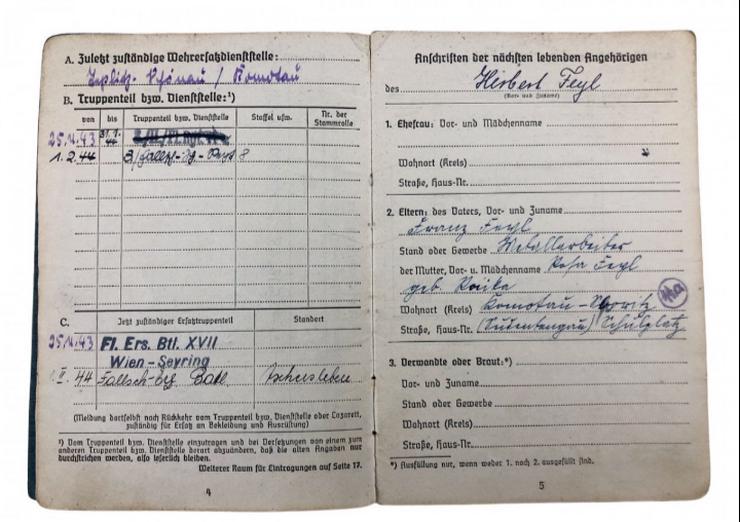 A. Zuletzt zuständige Wehrersatzdienststelle:
Teplitz-Schönau / Komotau
B. Truppenteil bzw. Dienststelle:¹)
von bis Truppenteil bzw. Dienststelle Staffel usw. Nr. der Stammrolle
25.11.43 31.1.44
1.2.44 3/Fallsch-Jg-Regt 8
C. Jetzt zuständiger Ersatztruppenteil Standort
25.11.43 Fl. Ers. Btl. XVII
Wien-Seyring
1.II.44 Fallsch-Jg Batl Aschersleben
(Meldung dortselbst nach Rückkehr vom Truppenteil bzw. Dienststelle oder Lazarett,
zuständig für Ersatz an Bekleidung und Ausrüstung)
¹) Vom Truppenteil bzw. Dienststelle einzutragen und bei Versetzungen von einem zum
anderen Truppenteil bzw. Dienststelle derart abzuändern, daß die alten Angaben nur
durchstrichen werden, also leserlich bleiben.
Weiterer Raum für Eintragungen auf Seite 17.
4
Anschriften der nächsten lebenden Angehörigen
des Herbert Feyl
(Vor- und Zuname)
1. Ehefrau: Vor- und Mädchenname
Wohnort (Kreis)
Straße, Haus-Nr.
2. Eltern: des Vaters, Vor- und Zuname
Franz Feyl
Stand oder Gewerbe Metallarbeiter
der Mutter, Vor- u. Mädchenname Rosa Feyl
geb.
Wohnort (Kreis) Komotau-
Straße, Haus-Nr. (Sudetengau) Schulplatz
3. Verwandte oder Braut:*)
Vor- und Zuname
Stand oder Gewerbe
Wohnort (Kreis)
Straße, Haus-Nr.
*) Ausfüllung nur, wenn weder 1. noch 2. ausgefüllt sind.
5